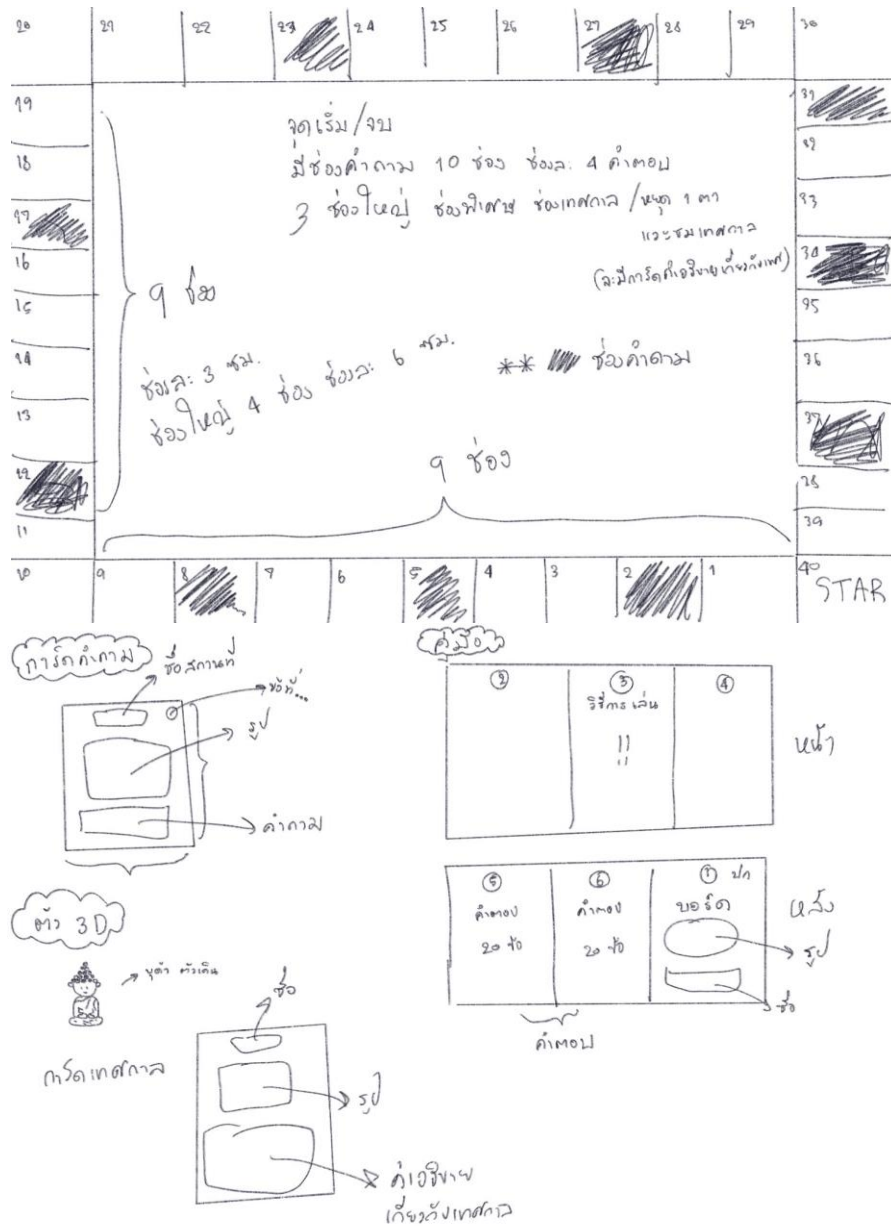 20 21 22 23 24 25 26 27 28 29 30
19
18
17
16
15
14
13
12
11
31
32
33
34
35
36
37
38
39
จุดเริ่ม/จบ
มีช่องคำถาม 10 ช่อง ช่องละ 4 คำตอบ
3 ช่องใหญ่ ช่องพิเศษ ช่องเทศกาล / หยุด 1 ตา
และชมเทศกาล
(จะมีการ์ดคำอธิบายเกี่ยวกับเทศ)
9 ช่อง
ช่องละ 3 ซม.
ช่องใหญ่ 4 ช่อง ช่องละ 6 ซม.
** ช่องคำถาม
9 ช่อง
10 9 8 7 6 5 4 3 2 1 40
STAR
การ์ดคำถาม
ชื่อสถานที่
ข้อที่...
รูป
คำถาม
คู่มือ
2 3 4
วิธีการเล่น
!!
หน้า
5 6 1 ปก
คำตอบ คำตอบ บอร์ด
20 ข้อ 20 ข้อ
หลัง
รูป
ชื่อ
คำตอบ
ตัว 3D
ตัวเดิน
การ์ดเทศกาล
ชื่อ
รูป
คำอธิบาย
เกี่ยวกับเทศกาล